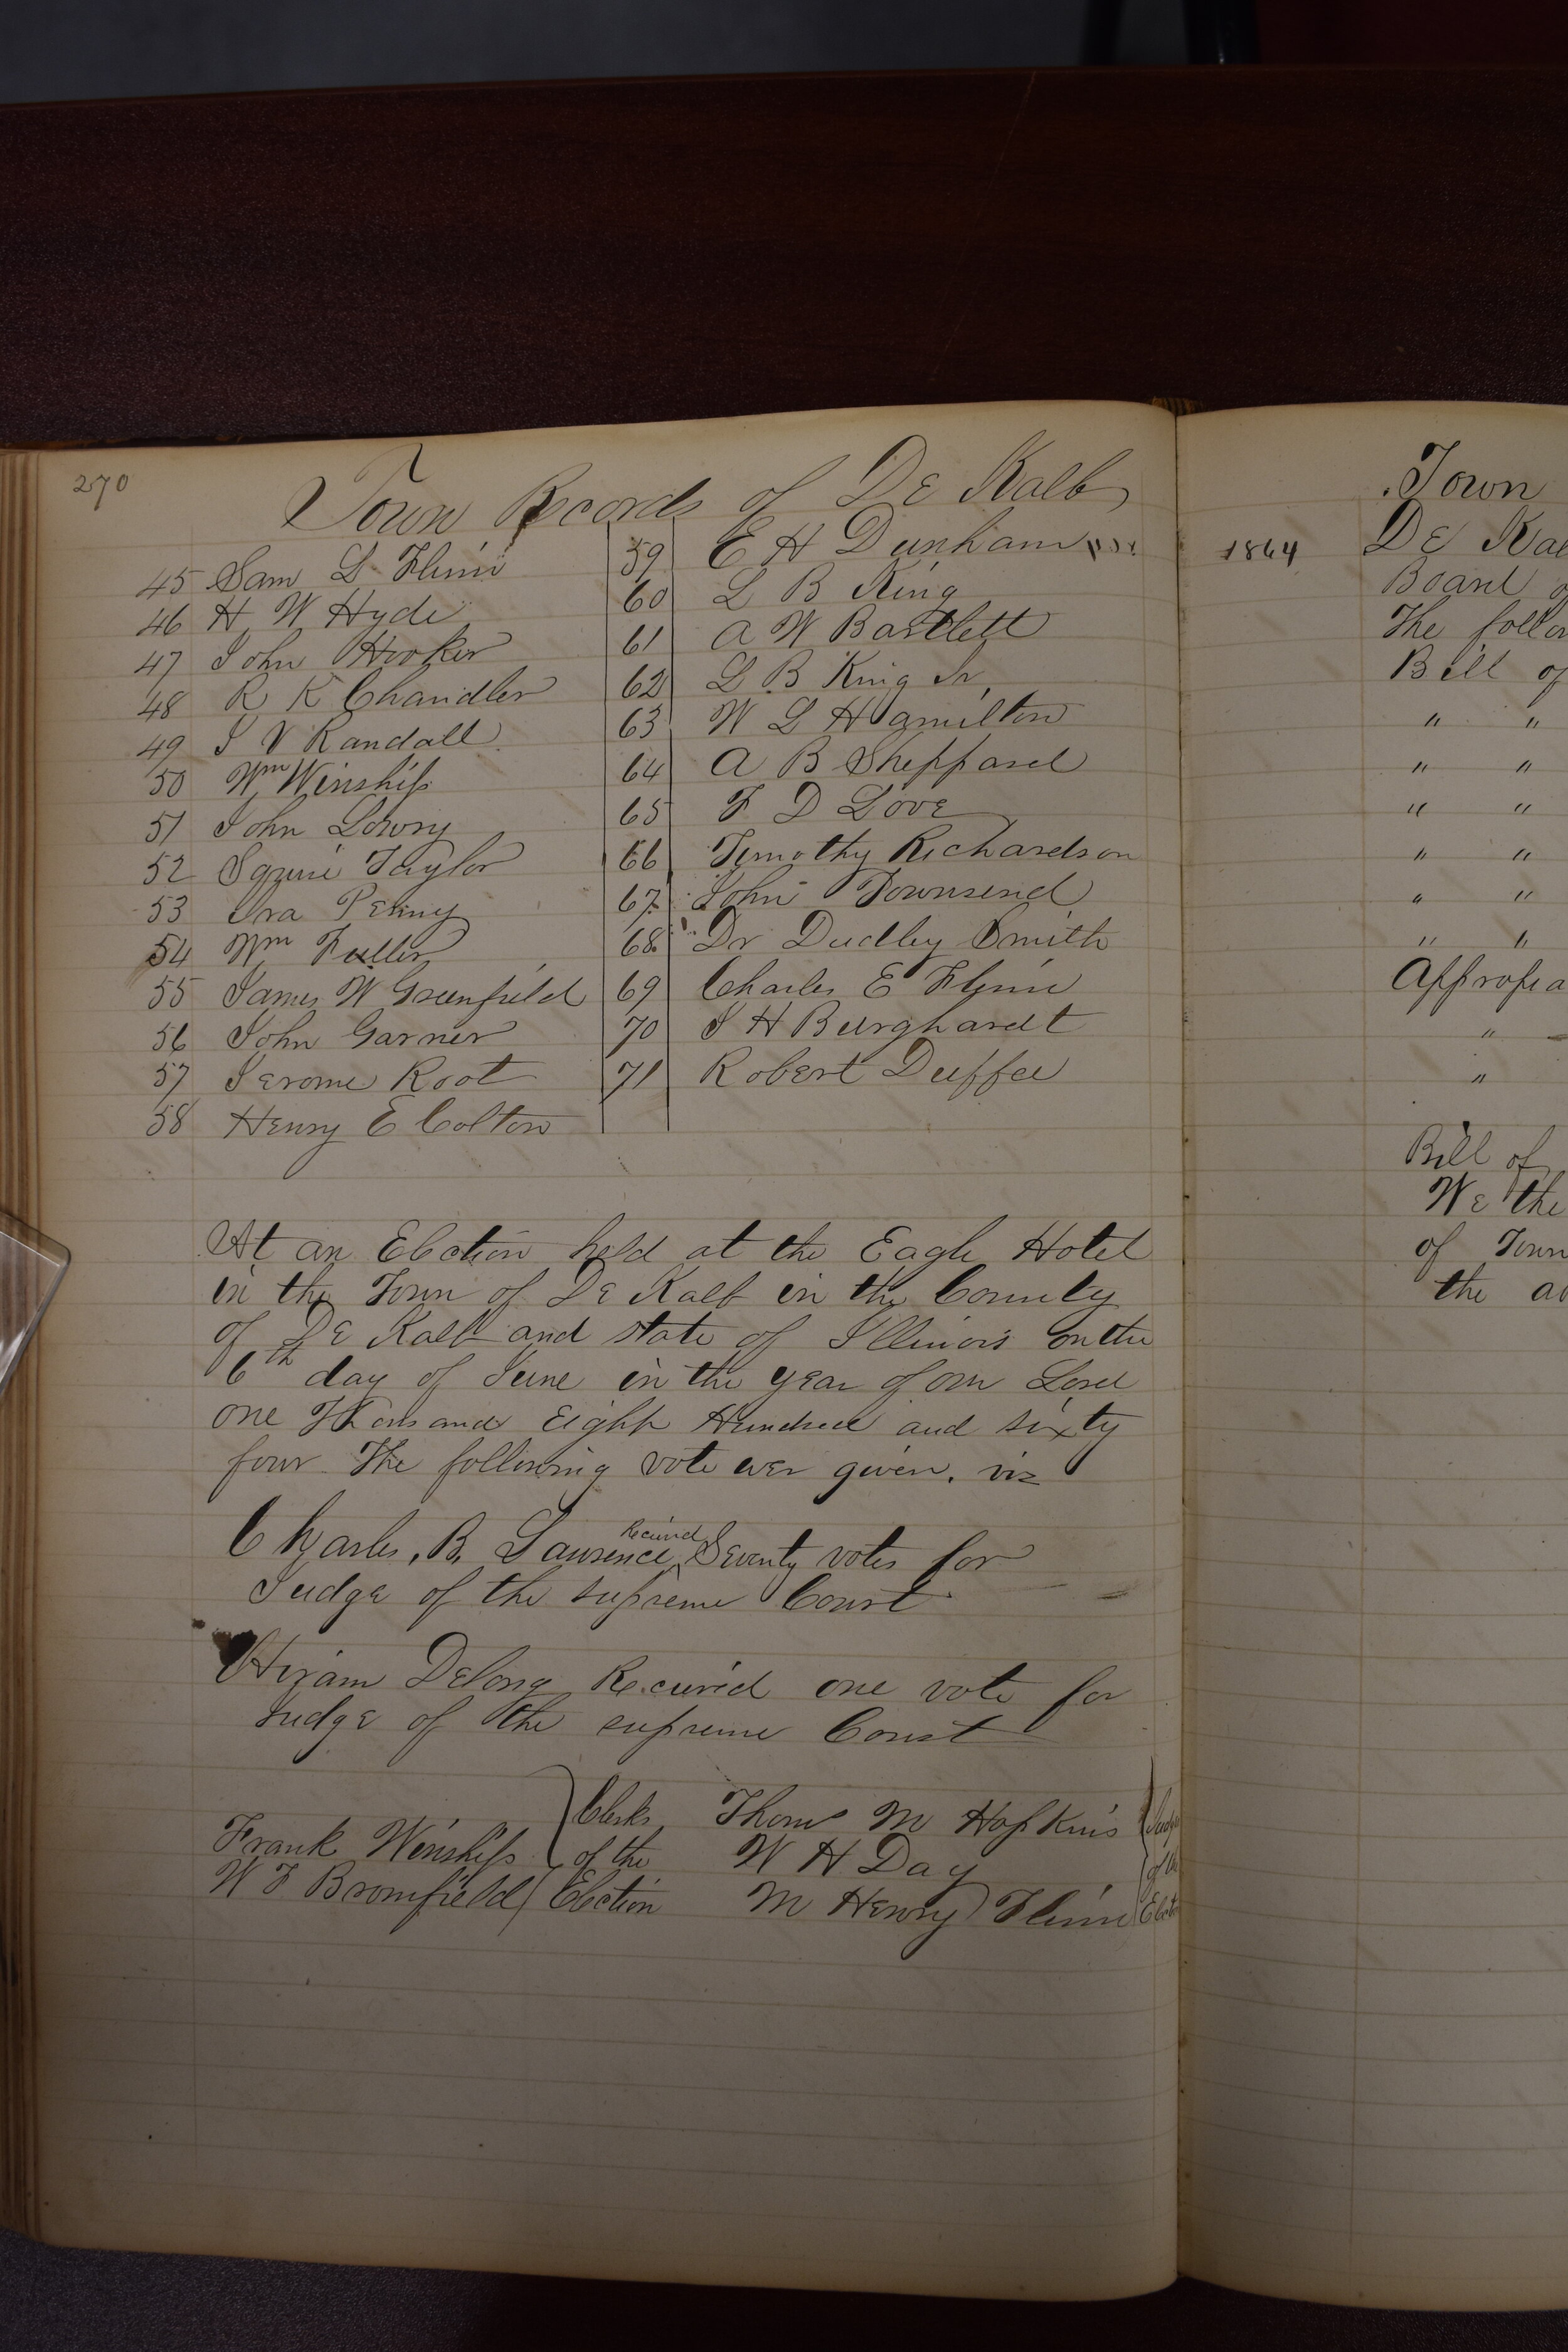 270
Town Records of De Kalb
45 Sam L Flinn
46 H W Hyde
47 John Hooker
48 R K Chandler
49 J V Randall
50 Wm Winship
51 John Lowry
52 Squire Taylor
53 Ira Penny
54 Wm Fuller
55 James W Greenfield
56 John Garner
57 Jerome Root
58 Henry E Colton
59 E H Dunham
60 L B King
61 A W Bartlett
62 L B King Jr,
63 W L Hamilton
64 A B Sheppard
65 F D Love
66 Timothy Richardson
67 John Townsend
68 Dr Dudley Smith
69 Charles E Flinn
70 J H Burghardt
71 Robert Duffee
At an Election held at the Eagle Hotel
in the Town of De Kalb in the County
of De Kalb and state of Illinois on the
6th day of June in the year of our Lord
one Thousand Eight Hundred and sixty
four The following vote wer given. viz
Charles. B. Lawrence Received Seventy votes for
Judge of the supreme Court
Hiram Delong Received one vote for
Judge of the supreme Court
Frank Winship
W F Bromfield
Clerks
of the
Election
Thoms M Hopkins
W H Day
M Henry Flinn
Judges
of the
Elect
Town
1864 De Kal
Board o
The follow
Bill of
" "
" "
" "
" "
" "
" "
Appropria
"
"
Bill of
We the
of Town
the ac